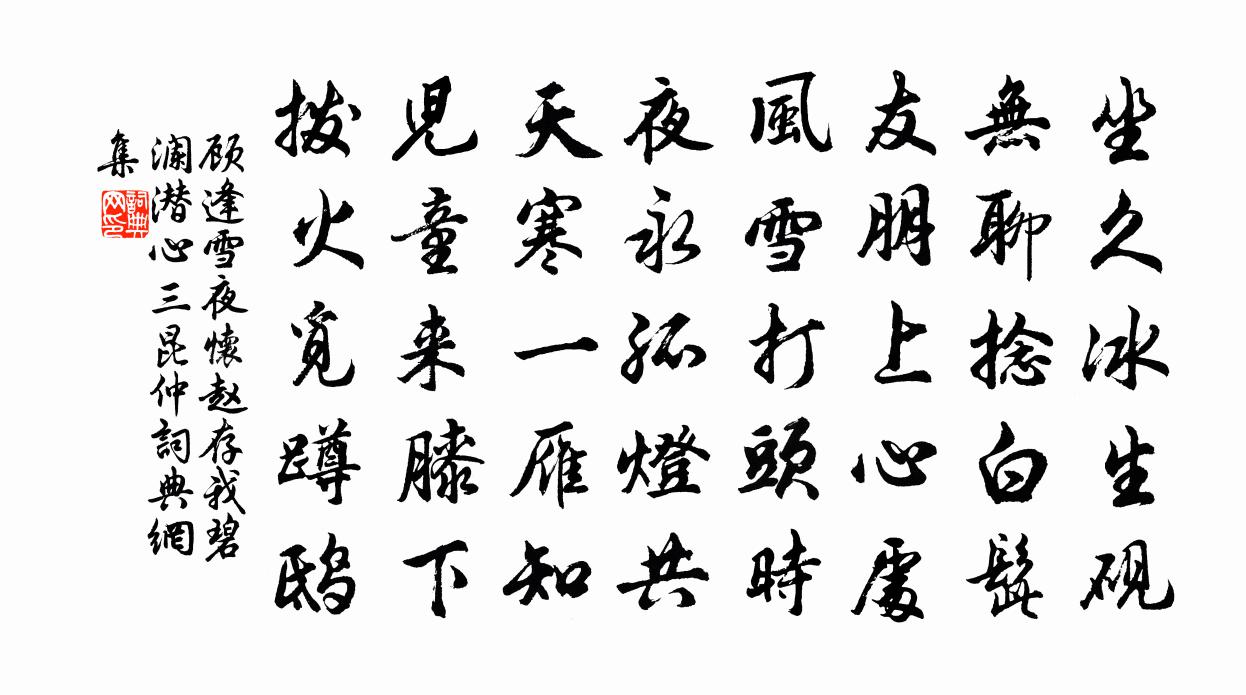 坐久冰生硯
無聊捻白髭
友朋上心處
風雪打頭時
夜永孤燈共
天寒一雁知
児童来膝下
撥火覓蹲鴟
顾逢雪夜懷赵存我碧
澜潜心三昆仲詞典網
集
詞典
网印